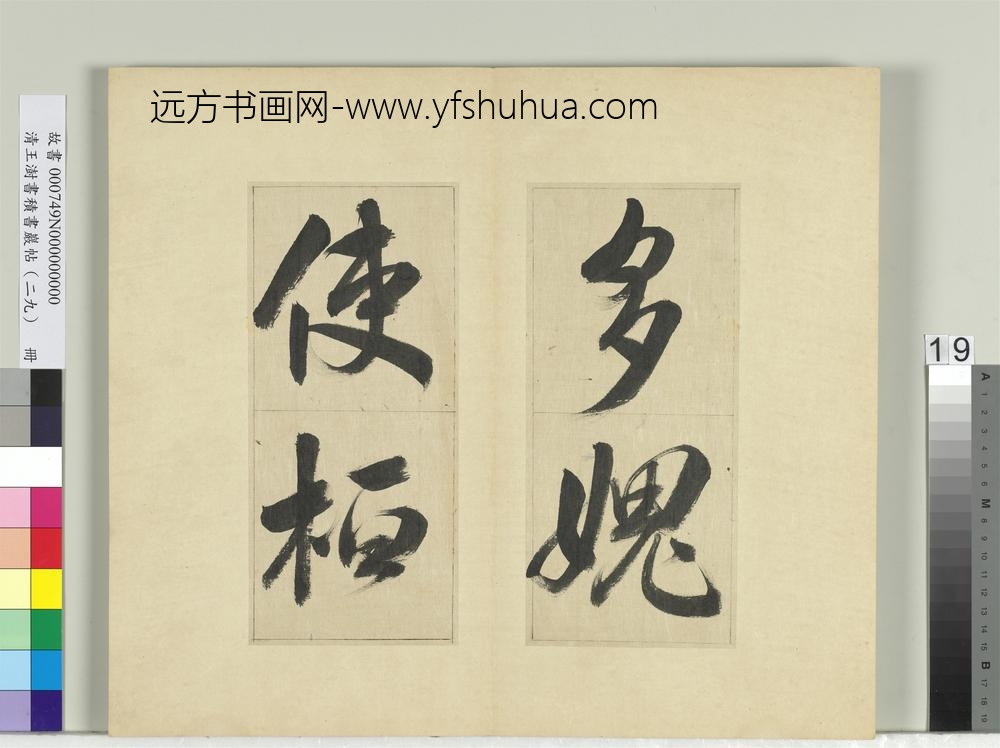 远方书画网-www.yfshuhua.com
多媿
使桓
故書 000749N000000000
清王澍書積書巖帖(二九) 冊
19
A 1 2 3 4 5 6 M 8 9 10 11 12 13 14 15 B 17 18 19